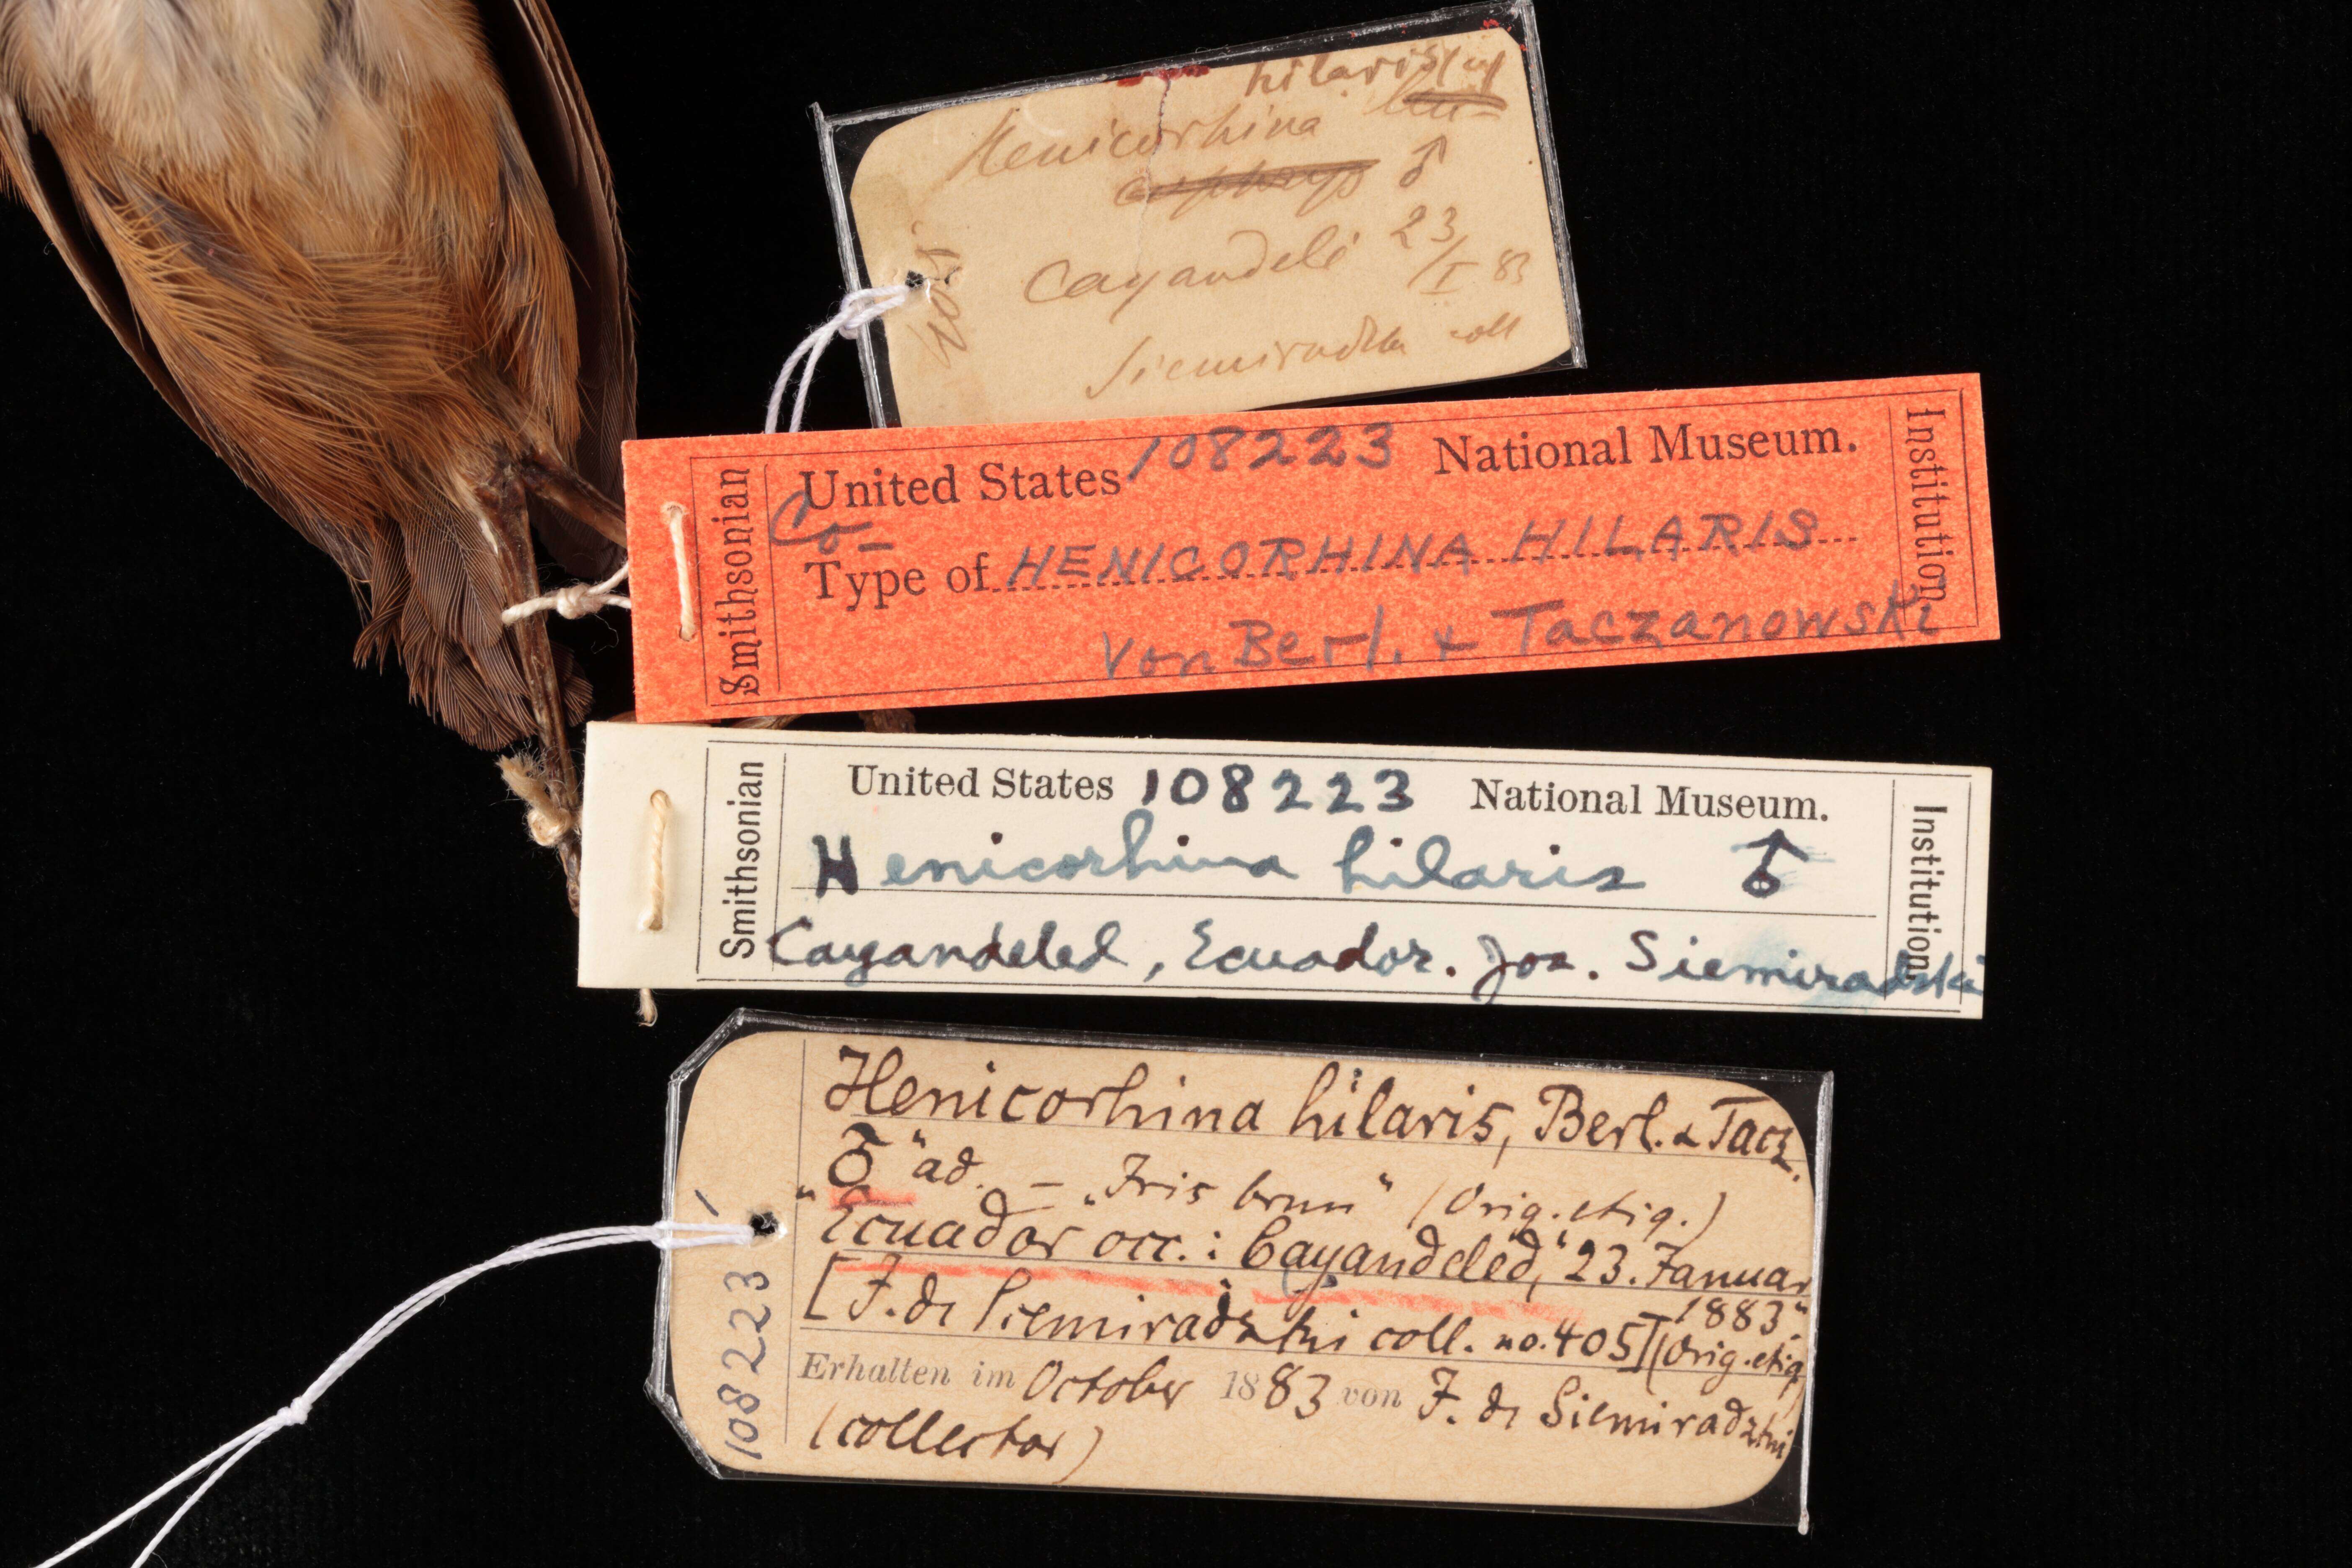 hilaris
Henicorhina leu-
♂
Cayandelé 23/I 83
Siemiradzki coll
405
Smithsonian
United States 108223 National Museum.
Co-
Type of HENICORHINA HILARIS
Von Berl. & Taczanowski
Institution
Smithsonian
United States 108223 National Museum.
Henicorhina hilaris ♂
Cayandeled, Ecuador. Jos. Siemiradski
Institution
108223
Henicorhina hilaris, Berl. & Tacz.
"♂" ad. – „Iris brun" (Orig. etiq.)
"Ecuador occ.: Cayandeled," 23. Januar
1883"
[J. de Siemiradzki coll. no. 405] (Orig. etiq.)
Erhalten im October 1883 von J. de Siemiradzki
(collector)